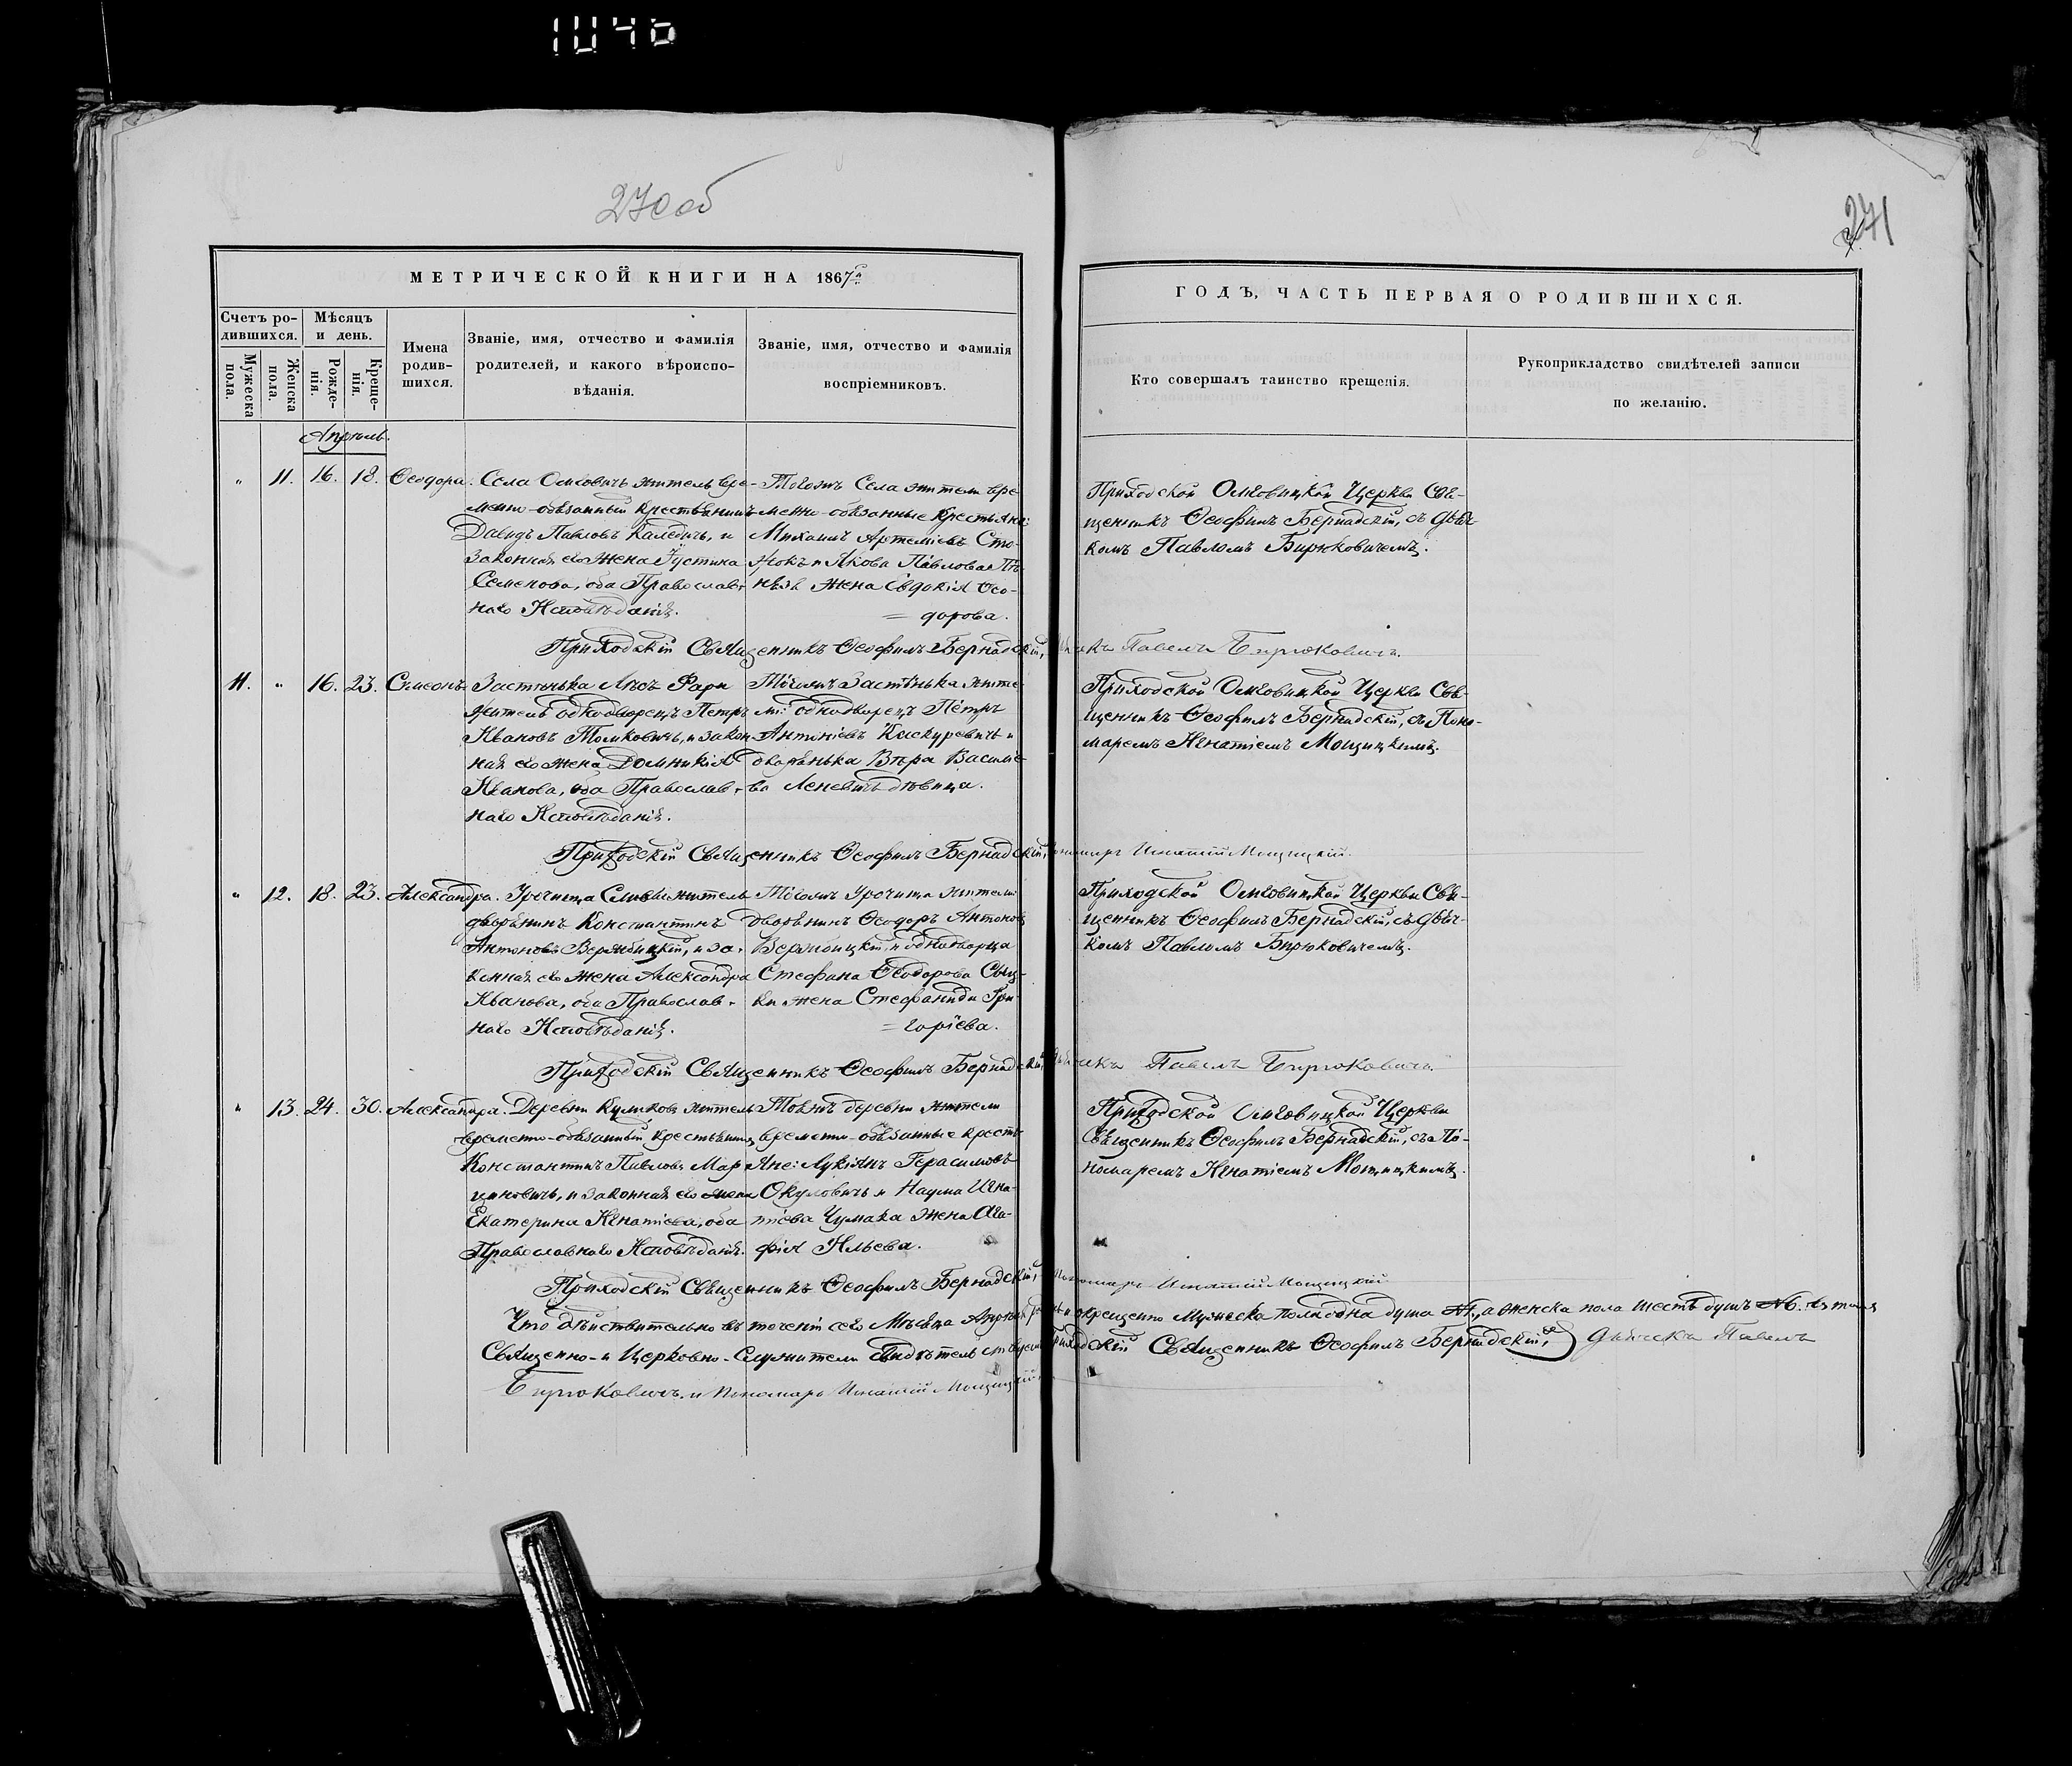 1046
270 об
271
МЕТРИЧЕСКОЙ КНИГИ НА 1867й
ГОДЪ, ЧАСТЬ ПЕРВАЯ О РОДИВШИХСЯ.
Счетъ ро-
дившихся.
Мужеска пола.
Женска пола.
Мѣсяцъ
и день.
Рожде-
нія.
Креще-
нія.
Имена
родив-
шихся.
Званіе, имя, отчество и фамилія
родителей, и какого вѣроиспо-
вѣданія.
Званіе, имя, отчество и фамилія
воспріемниковъ.
Кто совершалъ таинство крещенія.
Рукоприкладство свидѣтелей записи
по желанію.
Апрѣль.
" 11. 16. 18. Ѳеодора.
Села Ольговичъ житель вре-
менно-обязанный крестьянинъ
Давидъ Павловъ Калевичъ, и
законная его жена Іустина
Семенова, оба Православ-
наго Исповѣданія.
Тогожъ Села жители вре-
менно-обязанные крестьяне:
Михаилъ Артеміевъ Сто-
жена Евдокія Ѳео-
дорова.
Приходской Ольговицкой Церкви Свя-
щенникъ Ѳеофилъ Бернадскій, съ дьяч-
комъ Павломъ Бирюковичемъ.
Приходскій Священникъ Ѳеофилъ Бернадскій, Дьячекъ Павелъ Бирюковичъ.
11. " 16. 23. Симеонъ.
Застѣнька Лѣсъ Фари
житель однодворецъ Петръ
Ивановъ Толиковичъ, и закон-
ная его жена Домникія
Иванова, оба Православ-
наго Исповѣданія.
Тогожъ Застѣнька жите-
ли: однодворецъ Петръ
Антоніевъ Каскуревичъ и
дворянька Вѣра Василіе-
ва Леневичъ дѣвица.
Приходской Ольговицкой Церкви Свя-
щенникъ Ѳеофилъ Бернадскій, съ Поно-
маремъ Игнатіемъ Мощицкимъ.
Приходскій Священникъ Ѳеофилъ Бернадскій, Пономарь Игнатій Мощицкій.
" 12. 18. 23. Александра.
Урочища житель
дворянинъ Константинъ
Антоновъ Вержбицкій, и за-
конная его жена Александра
Иванова, оба Православ-
наго Исповѣданія.
Тогожъ Урочища жители:
дворянинъ Ѳеодоръ Антоновъ
Вержбицкій, и однодворца
Стефана Ѳеодорова
жена Стефанида Гри-
горіева.
Приходской Ольговицкой Церкви Свя-
щенникъ Ѳеофилъ Бернадскій, съ дьяч-
комъ Павломъ Бирюковичемъ.
Приходскій Священникъ Ѳеофилъ Бернадскій, Дьячекъ Павелъ Бирюковичъ.
" 13. 24. 30. Александра.
Деревни Куликовъ житель
временно-обязанный крестьянинъ
Константинъ Павловъ Мар-
циновичъ, и законная его жена
Екатерина Игнатіева, оба
Православнаго Исповѣданія.
Тояжъ деревни жители
временно-обязанные кресть-
яне: Лукіянъ Герасимовъ
Окуловичъ и Наума Игна-
тіева Чумака жена Ага-
фія Ильева.
Приходской Ольговицкой Церкви
Священникъ Ѳеофилъ Бернадскій, съ По-
номаремъ Игнатіемъ Мощицкимъ.
Приходскій Священникъ Ѳеофилъ Бернадскій, Пономарь Игнатій Мощицкій
Что дѣйствительно въ теченіи сего Мѣсяца Апрѣля и крещенно Мужеска пола одна душа №1., а женска пола шесть душъ №6. въ томъ
Священно-и Церковно-Служители свидѣтельствуемъ: Приходскій Священникъ Ѳеофилъ Бернадскій, Дьячекъ Павелъ
Бирюковичъ. и Пономарь Игнатій Мощицкій.